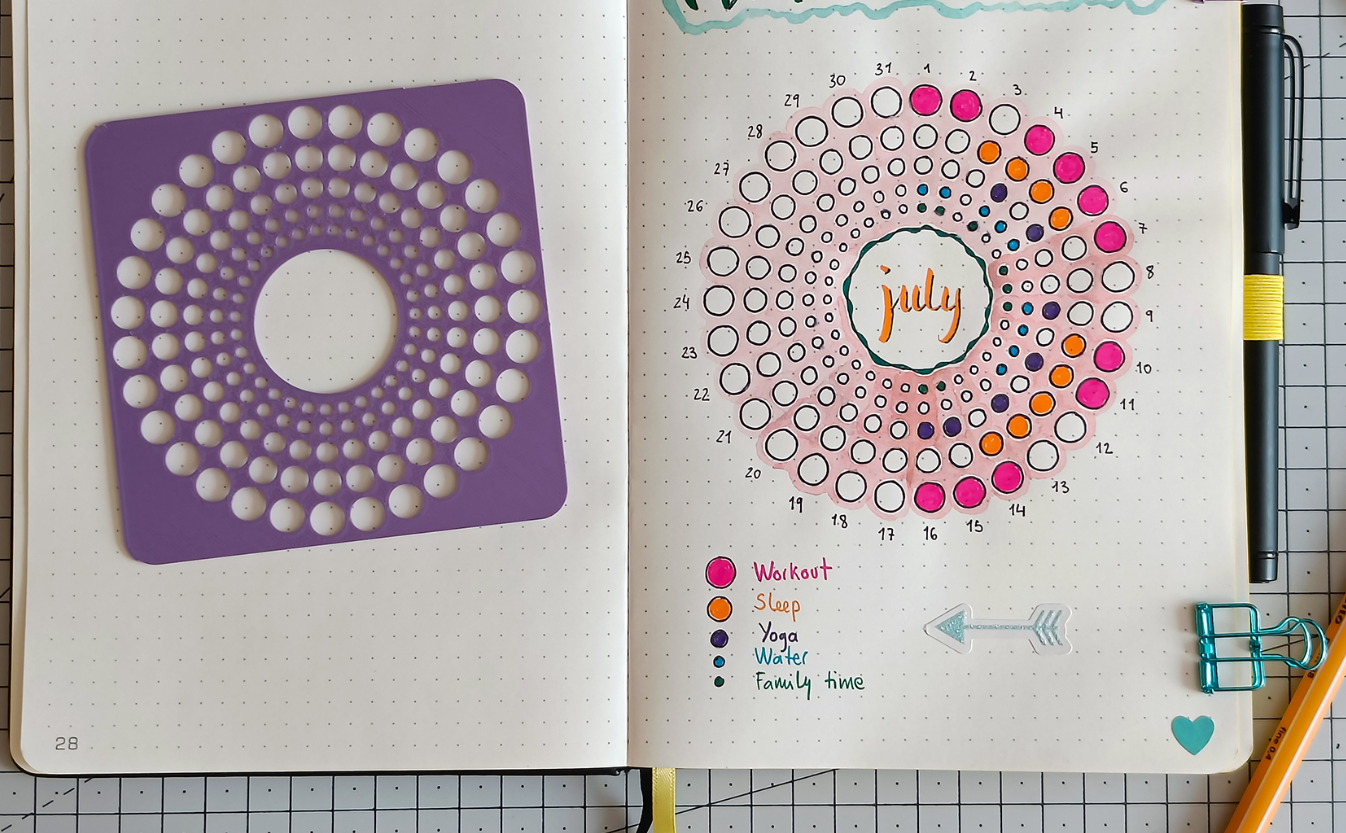 1
2
3
4
5
6
7
8
9
10
11
12
13
14
15
16
17
18
19
20
21
22
23
24
25
26
27
28
29
30
31
july
Workout
Sleep
Yoga
Water
Family time
28
fine 0.4